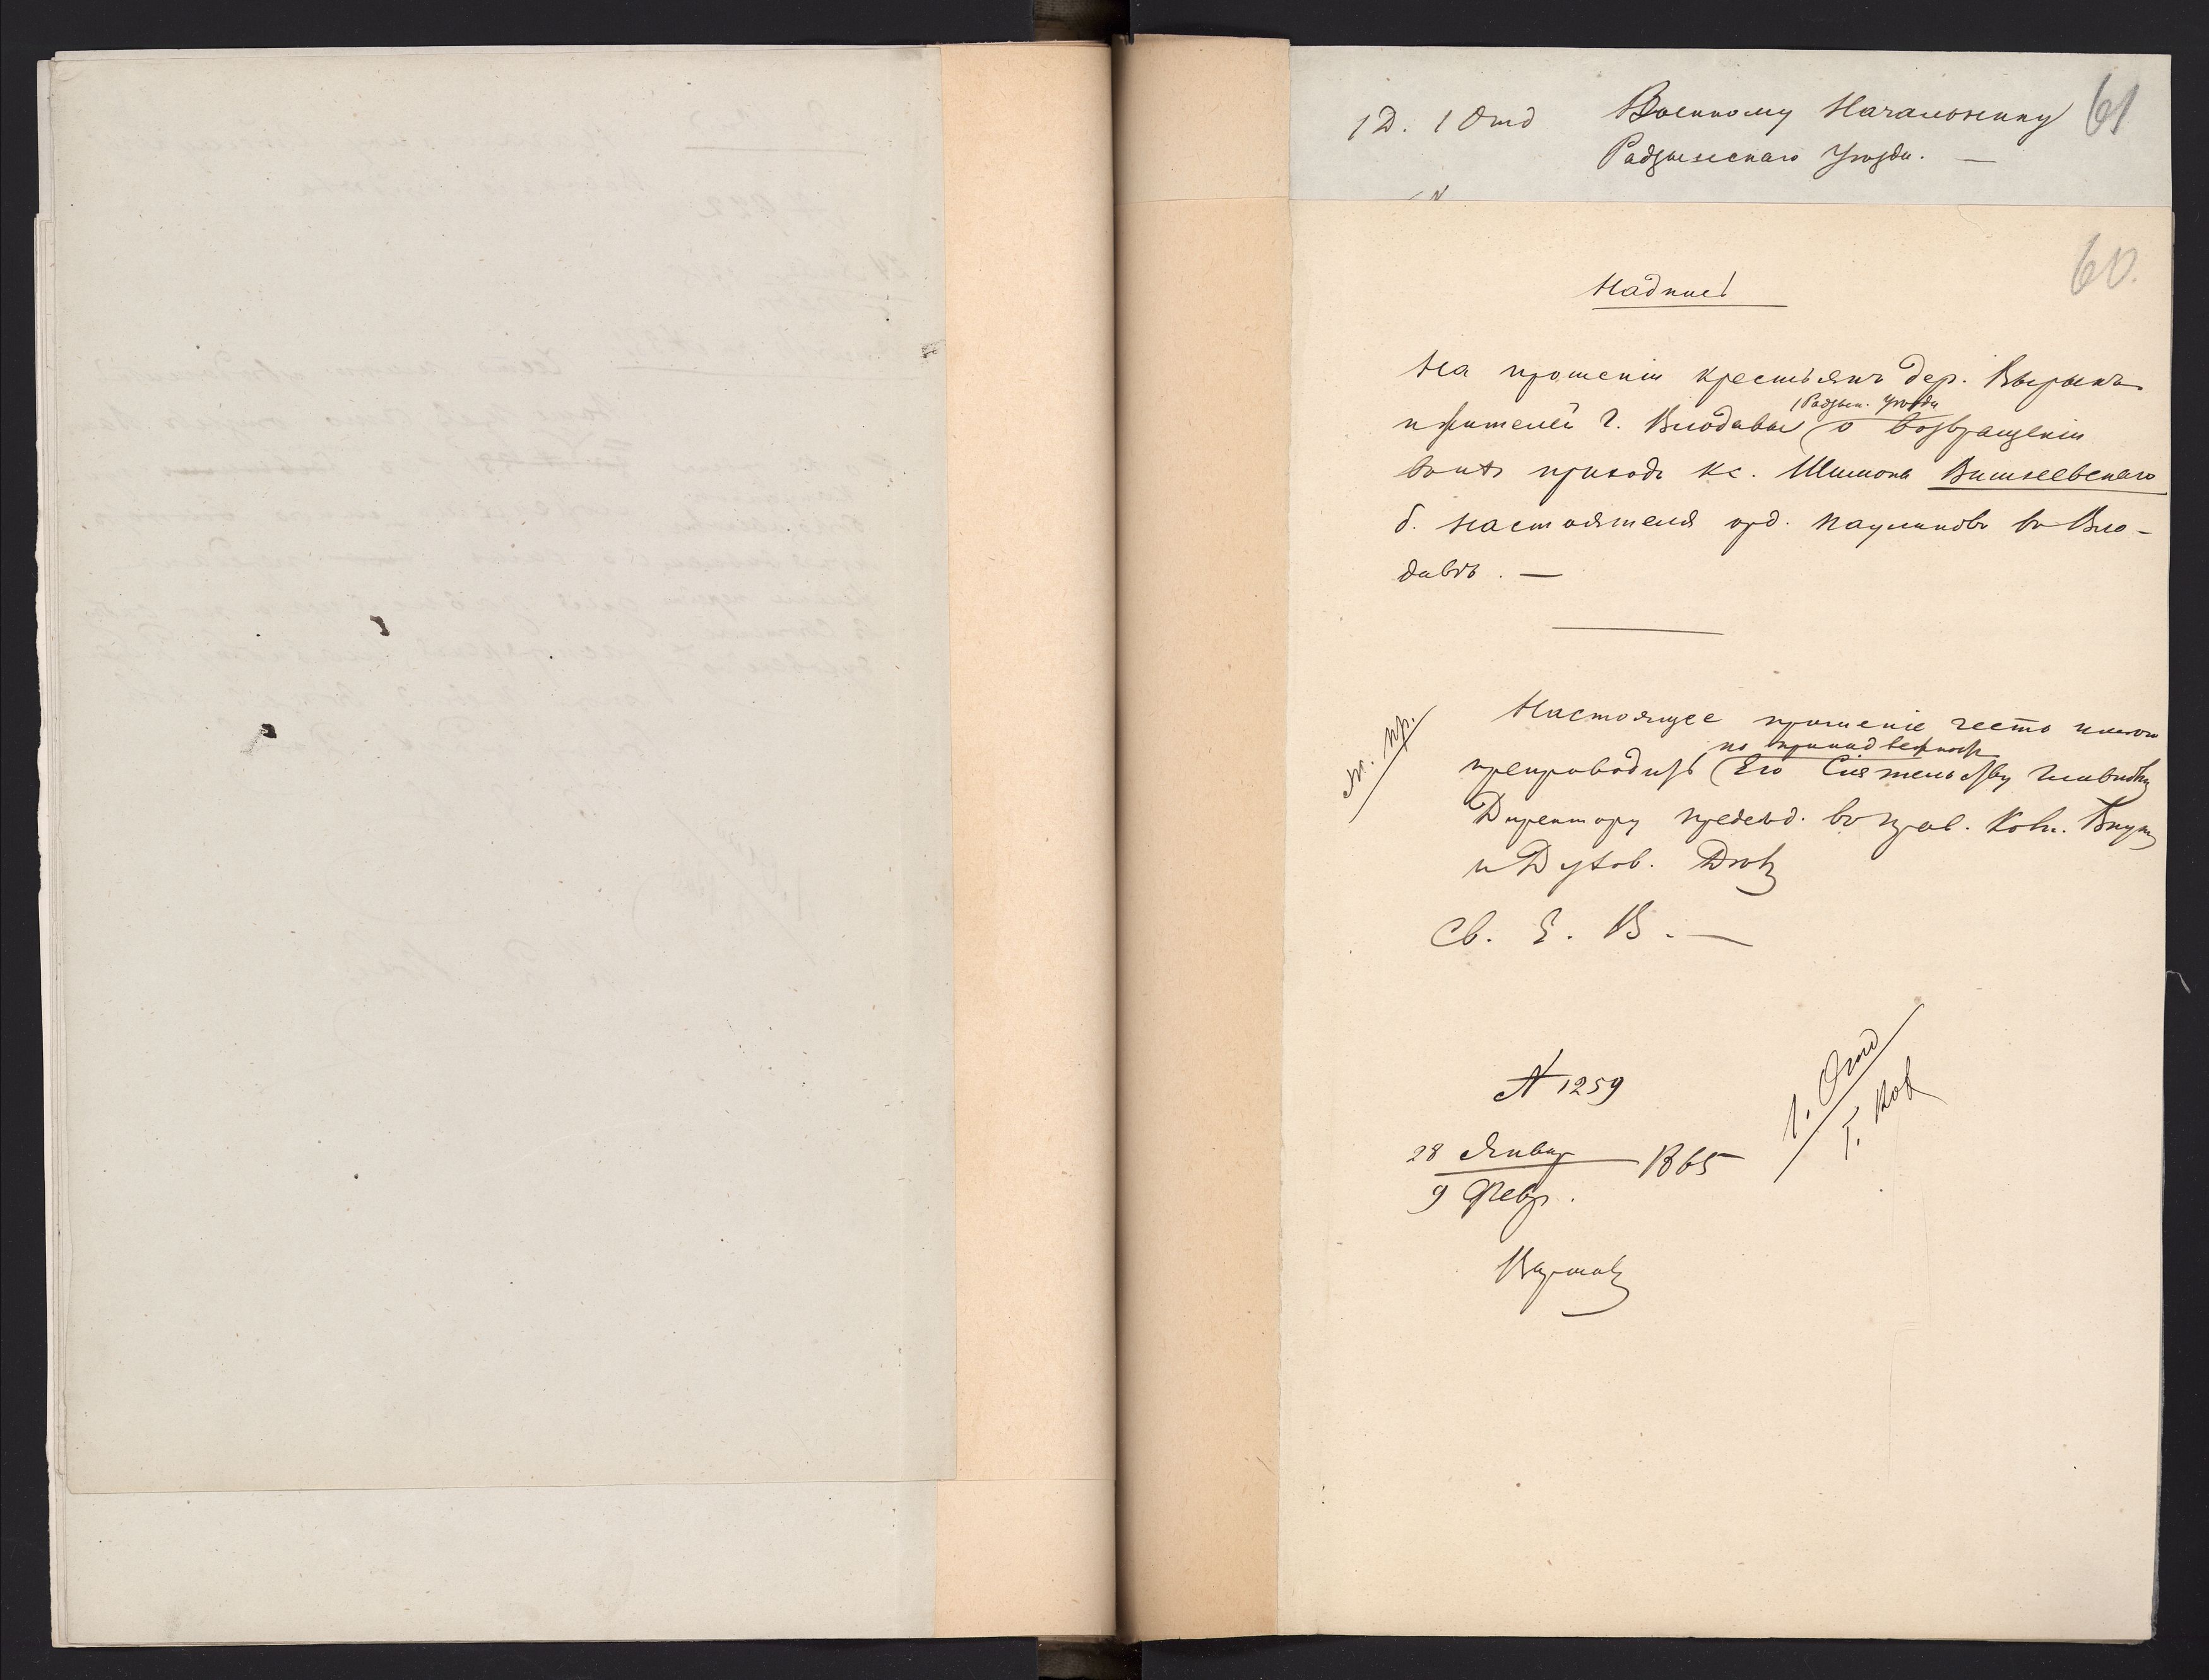 1 Д. 1 Отд
Военному Начальнику
Радзынскаго Уѣзда. —
61
60.
Надпись
На прошеніи крестьянъ дер. Вырыкъ
и жителей г. Влодавы (Радзын. Уѣзда) о возвращеніи
въ ихъ приходъ кс. Шимона Вишневскаго
б. настоятеля орд. Паулиновъ въ Вло-
давѣ. —
Настоящее прошеніе честь имѣю
препроводить по принадлежности Его Сіятельству Главному
Директору предсѣд. въ прав. Ком. Внутр
и Духов. Дѣлъ
Св. Е. В. —
№ 1259
28 Январ
9 Февр. 1865
Варшава
1. Отд